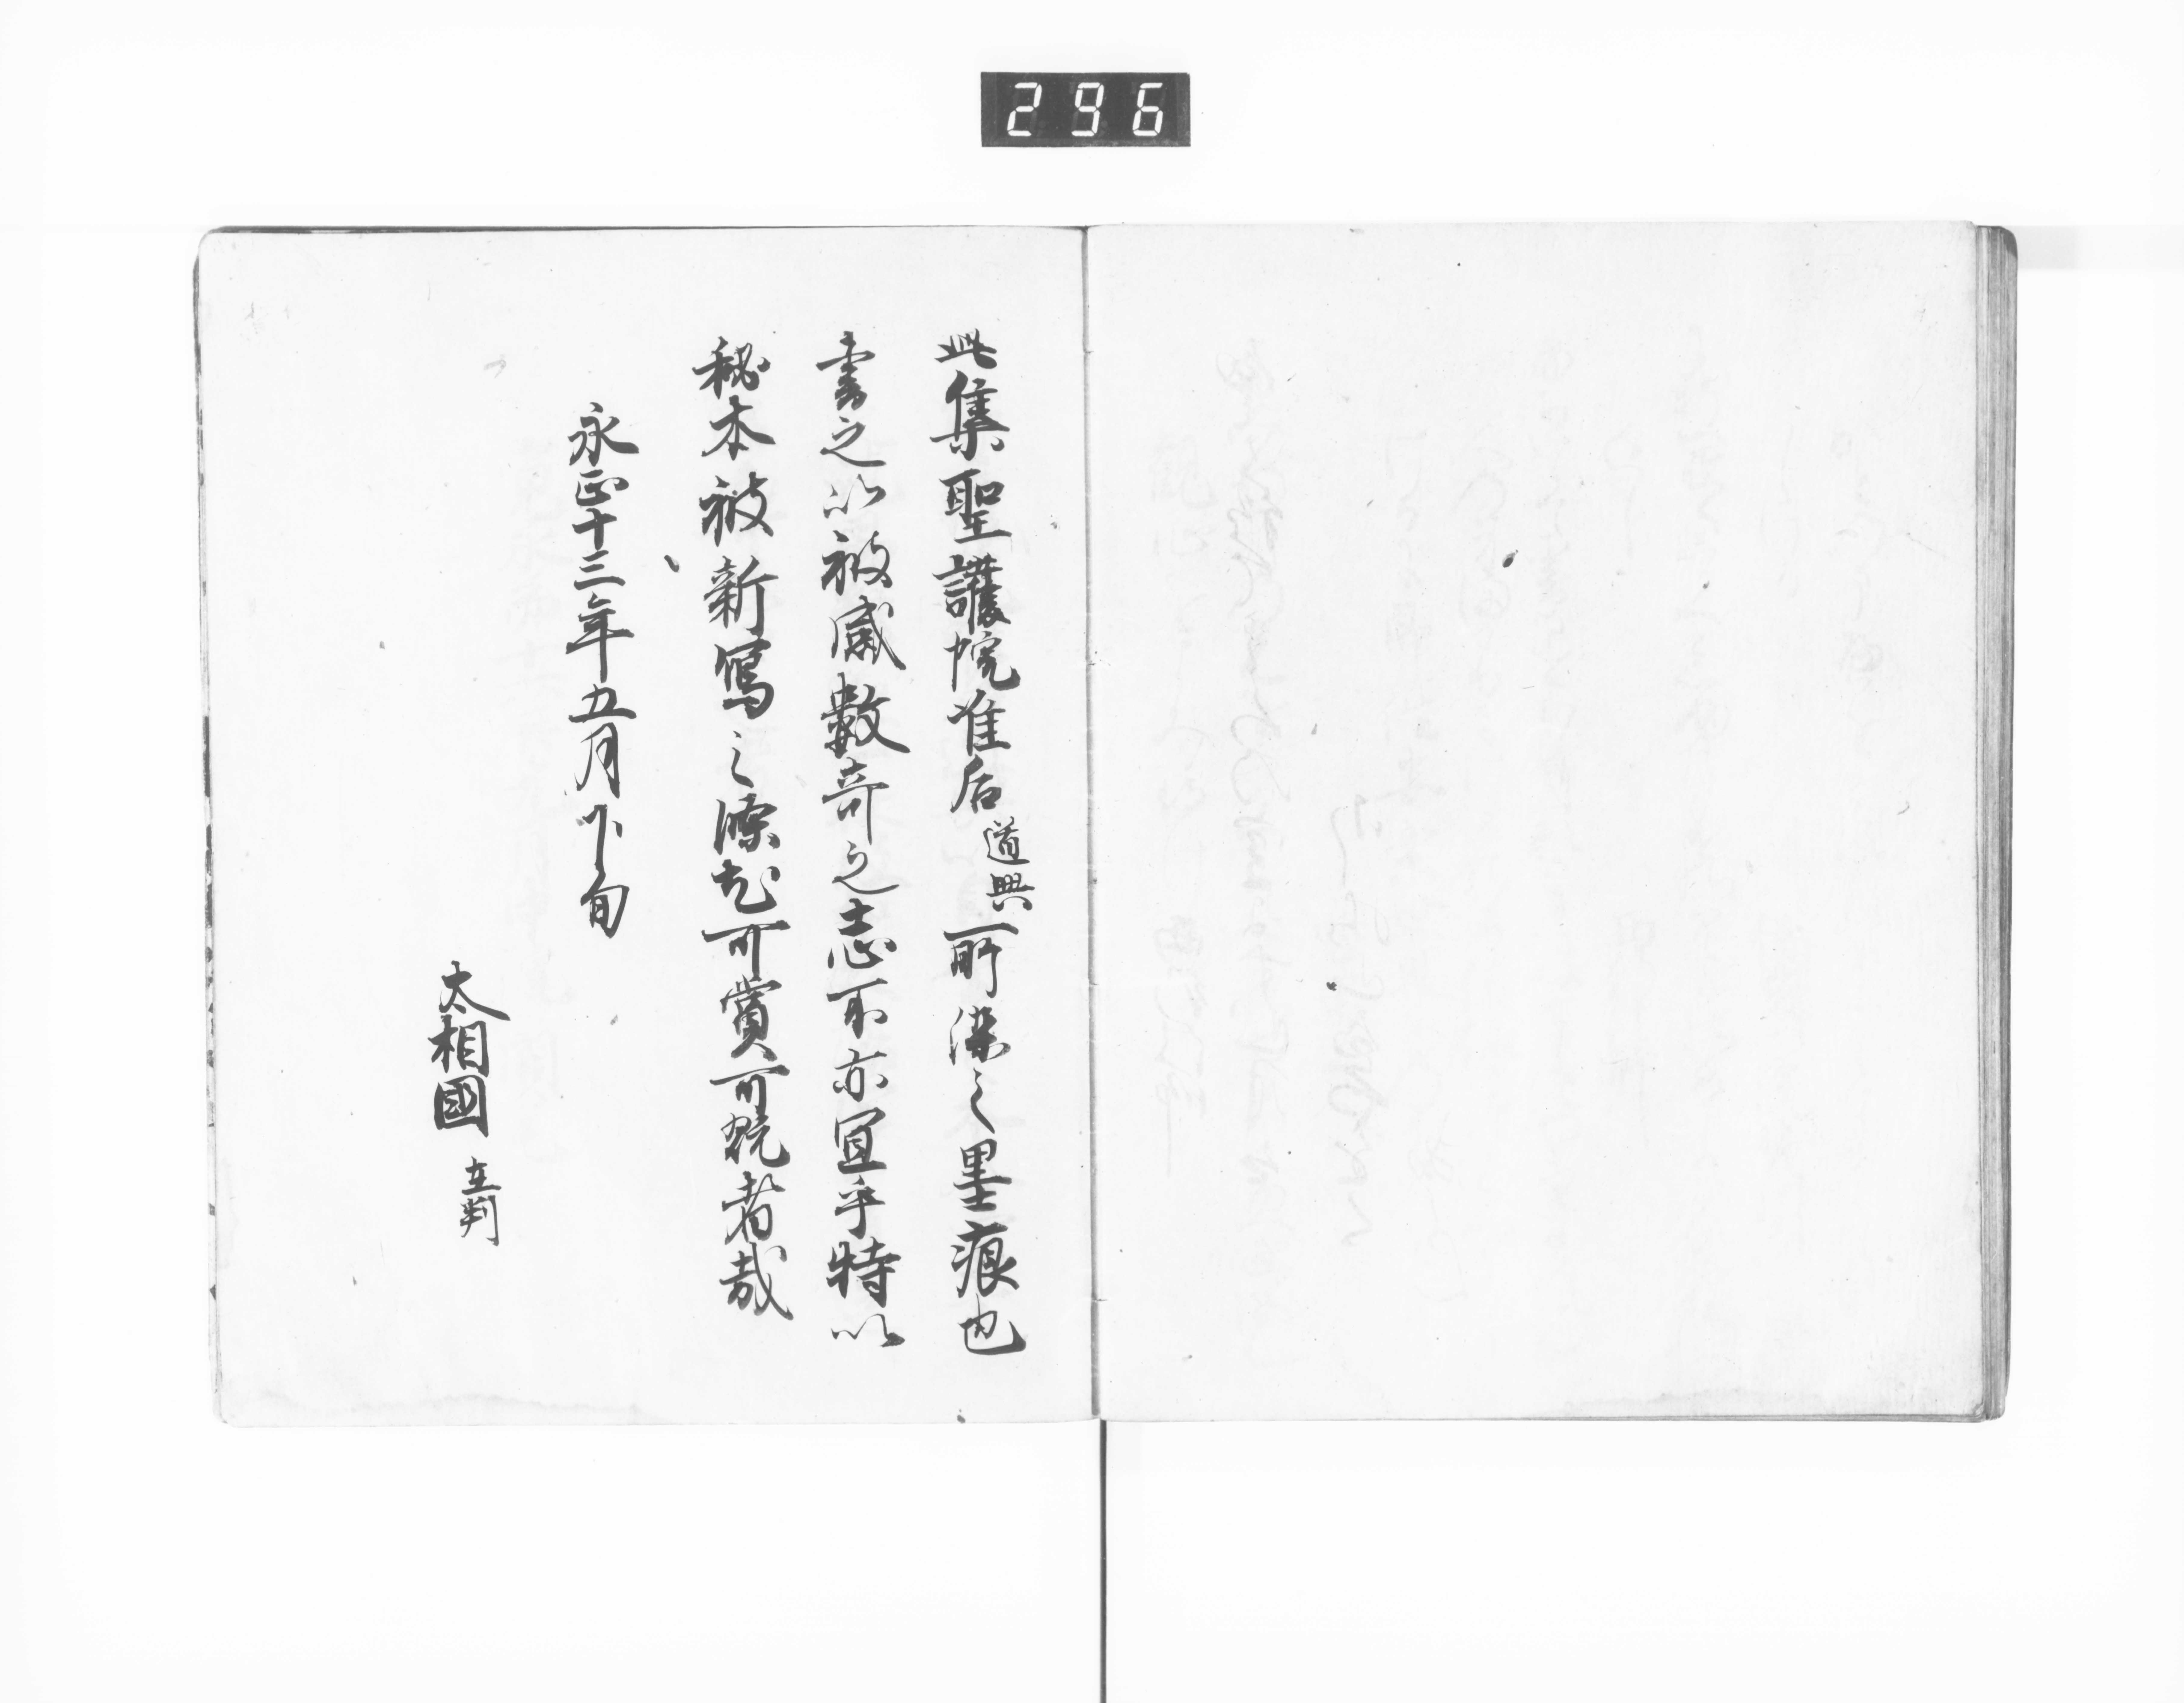 296
此集聖護院准后道興所染之墨痕也
書之以被感数奇之志不亦宜乎特以
秘本被新写之條尤可賞可翫者哉
永正十三年五月下旬
太相國 在判